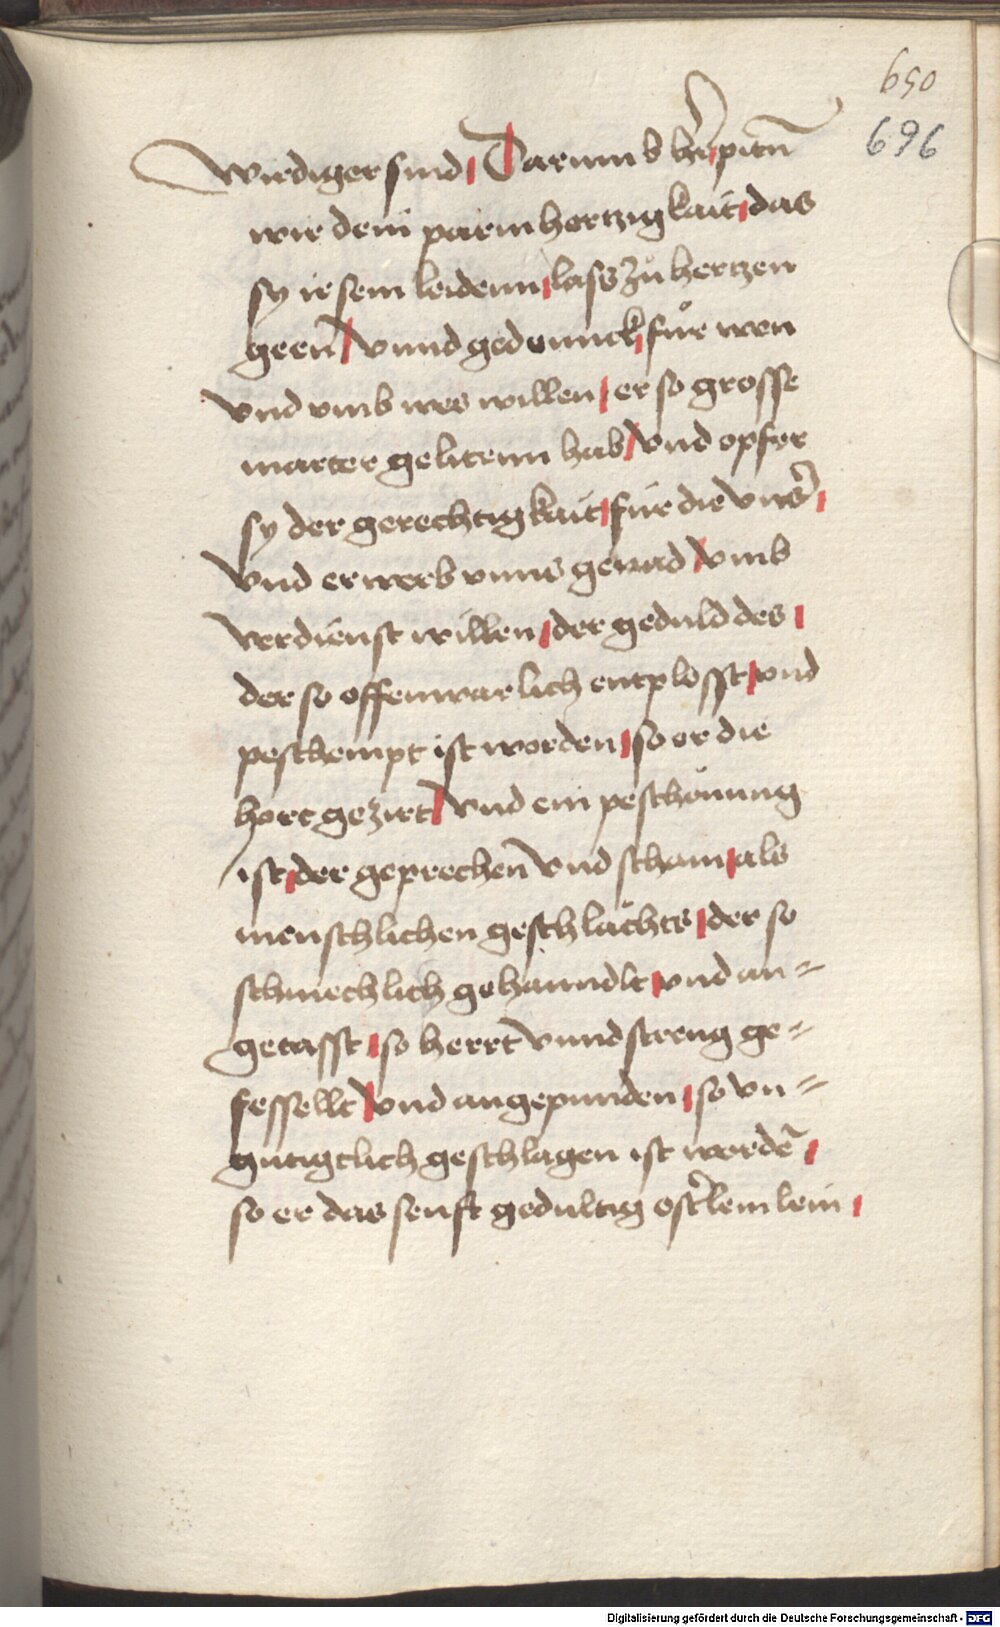 650
696
wirdiger sind Darumb her͛ pitn̄
wir dein parmhertzigkait das
sy ir sein leidenn lass zů hertzen
geen̄ vnnd gedennck für wen
vnd vmb wes willen er so grosse
marter gelitenn hab vnd opfer
sy der gerechtigkait für die vns͛
vnd erwerb vnns genad vmb
verdienst willen der geduld des
der so offenwarlich entplosst vnd
peschempt ist worden so er die
hort gezirt vnd ein peschönung
ist der geprechen̄ vnd scham als
menschlichen geschlächts der so
schmechlich gehanndlt vnd an=
getasst so herrt vnnd streng ge=
fessellt vnd angepunden so vn=
gütigclich geschlagen ist wordē
so er das senft gedultig ost͛lemlein
Digitalisierung gefördert durch die Deutsche Forschungsgemeinschaft - DFG